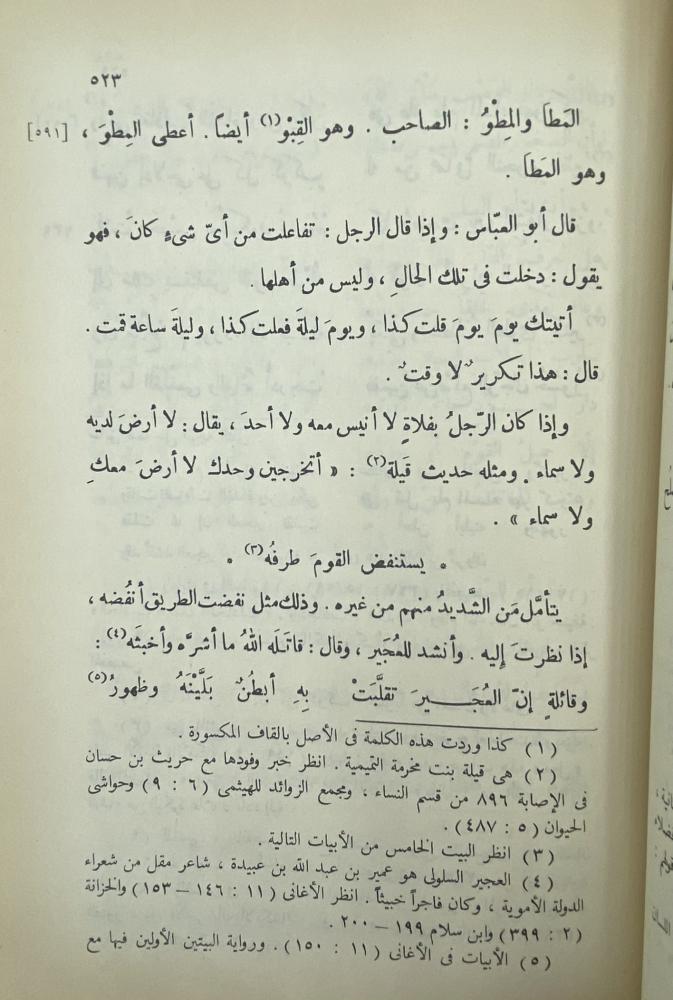 ٥٢٣
المَطَا والمِطْوُ : الصاحب . وهو القِبْو(١) أيضاً . أعطى المِطْوَ ، [٥٩١]
وهو المَطَا .
قال أبو العبّاس : وإذا قال الرجل : تفاعلت من أىّ شىءٍ كانَ ، فهو
يقول : دخلت فى تلك الحالِ ، وليس من أهلها .
أتيتك يومَ يومَ قلت كذا ، ويومَ ليلةَ فعلت كذا ، وليلةَ ساعة قمت .
قال : هذا تكريرٌ لا وقتٌ .
وإذا كان الرّجلُ بفلاةٍ لا أنيس معه ولا أحدَ ، يقال : لا أرضَ لديه
ولا سماء . ومثله حديث قَيلة(٢) : « أتخرجين وحدك لا أرضَ معكِ
ولا سماء » .
• يستنفض القومَ طرفُه(٣) •
يتأمَّل مَن الشَّديدُ منهم من غيره . وذلك مثل نفضت الطريق أنفُضه ،
إذا نظرتَ إليه . وأنشد للعُجَير ، وقال : قاتَله اللهُ ما أشرَّه وأخبثَه(٤) :
وقائلةٍ إنّ العُجَيرَ تقلَّبَتْ بِهِ أبطُنٌ بَلَّيْنَهُ وظهورُ(٥)
(١) كذا وردت هذه الكلمة فى الأصل بالقاف المكسورة .
(٢) هى قيلة بنت مخرمة التميمية . انظر خبر وفودها مع حريث بن حسان
فى الإصابة ٨٩٦ من قسم النساء ، ومجمع الزوائد للهيثمى (٦ : ٩) وحواشى
الحيوان (٥ : ٤٨٧) .
(٣) انظر البيت الخامس من الأبيات التالية .
(٤) العجير السلولى هو عمير بن عبد الله بن عبيدة ، شاعر مقل من شعراء
الدولة الأموية ، وكان فاجراً خبيثاً . انظر الأغانى (١١ : ١٤٦ – ١٥٣) والخزانة
(٢ : ٣٩٩) وابن سلام ١٩٩ – ٢٠٠ .
(٥) الأبيات فى الأغانى (١١ : ١٥٠) . ورواية البيتين الأولين فيها مع